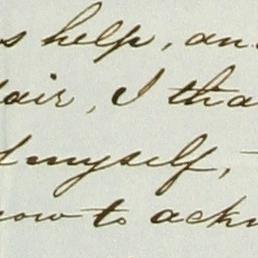 s help, an
air, I tha
myself,
now to ackn